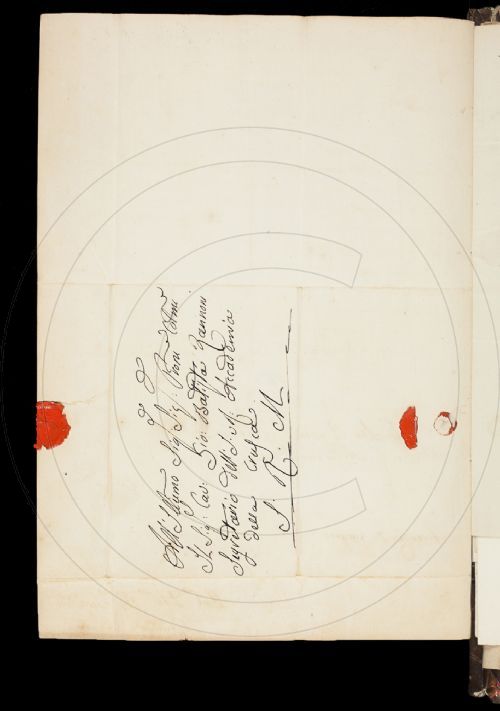 All' Illmo Sig. Sig. Pron Colmo
Il Sig. Cav. Gio: Batista Zannoni
Segretario dell' I. e R. Accademia
della Crusca
S. R. M.